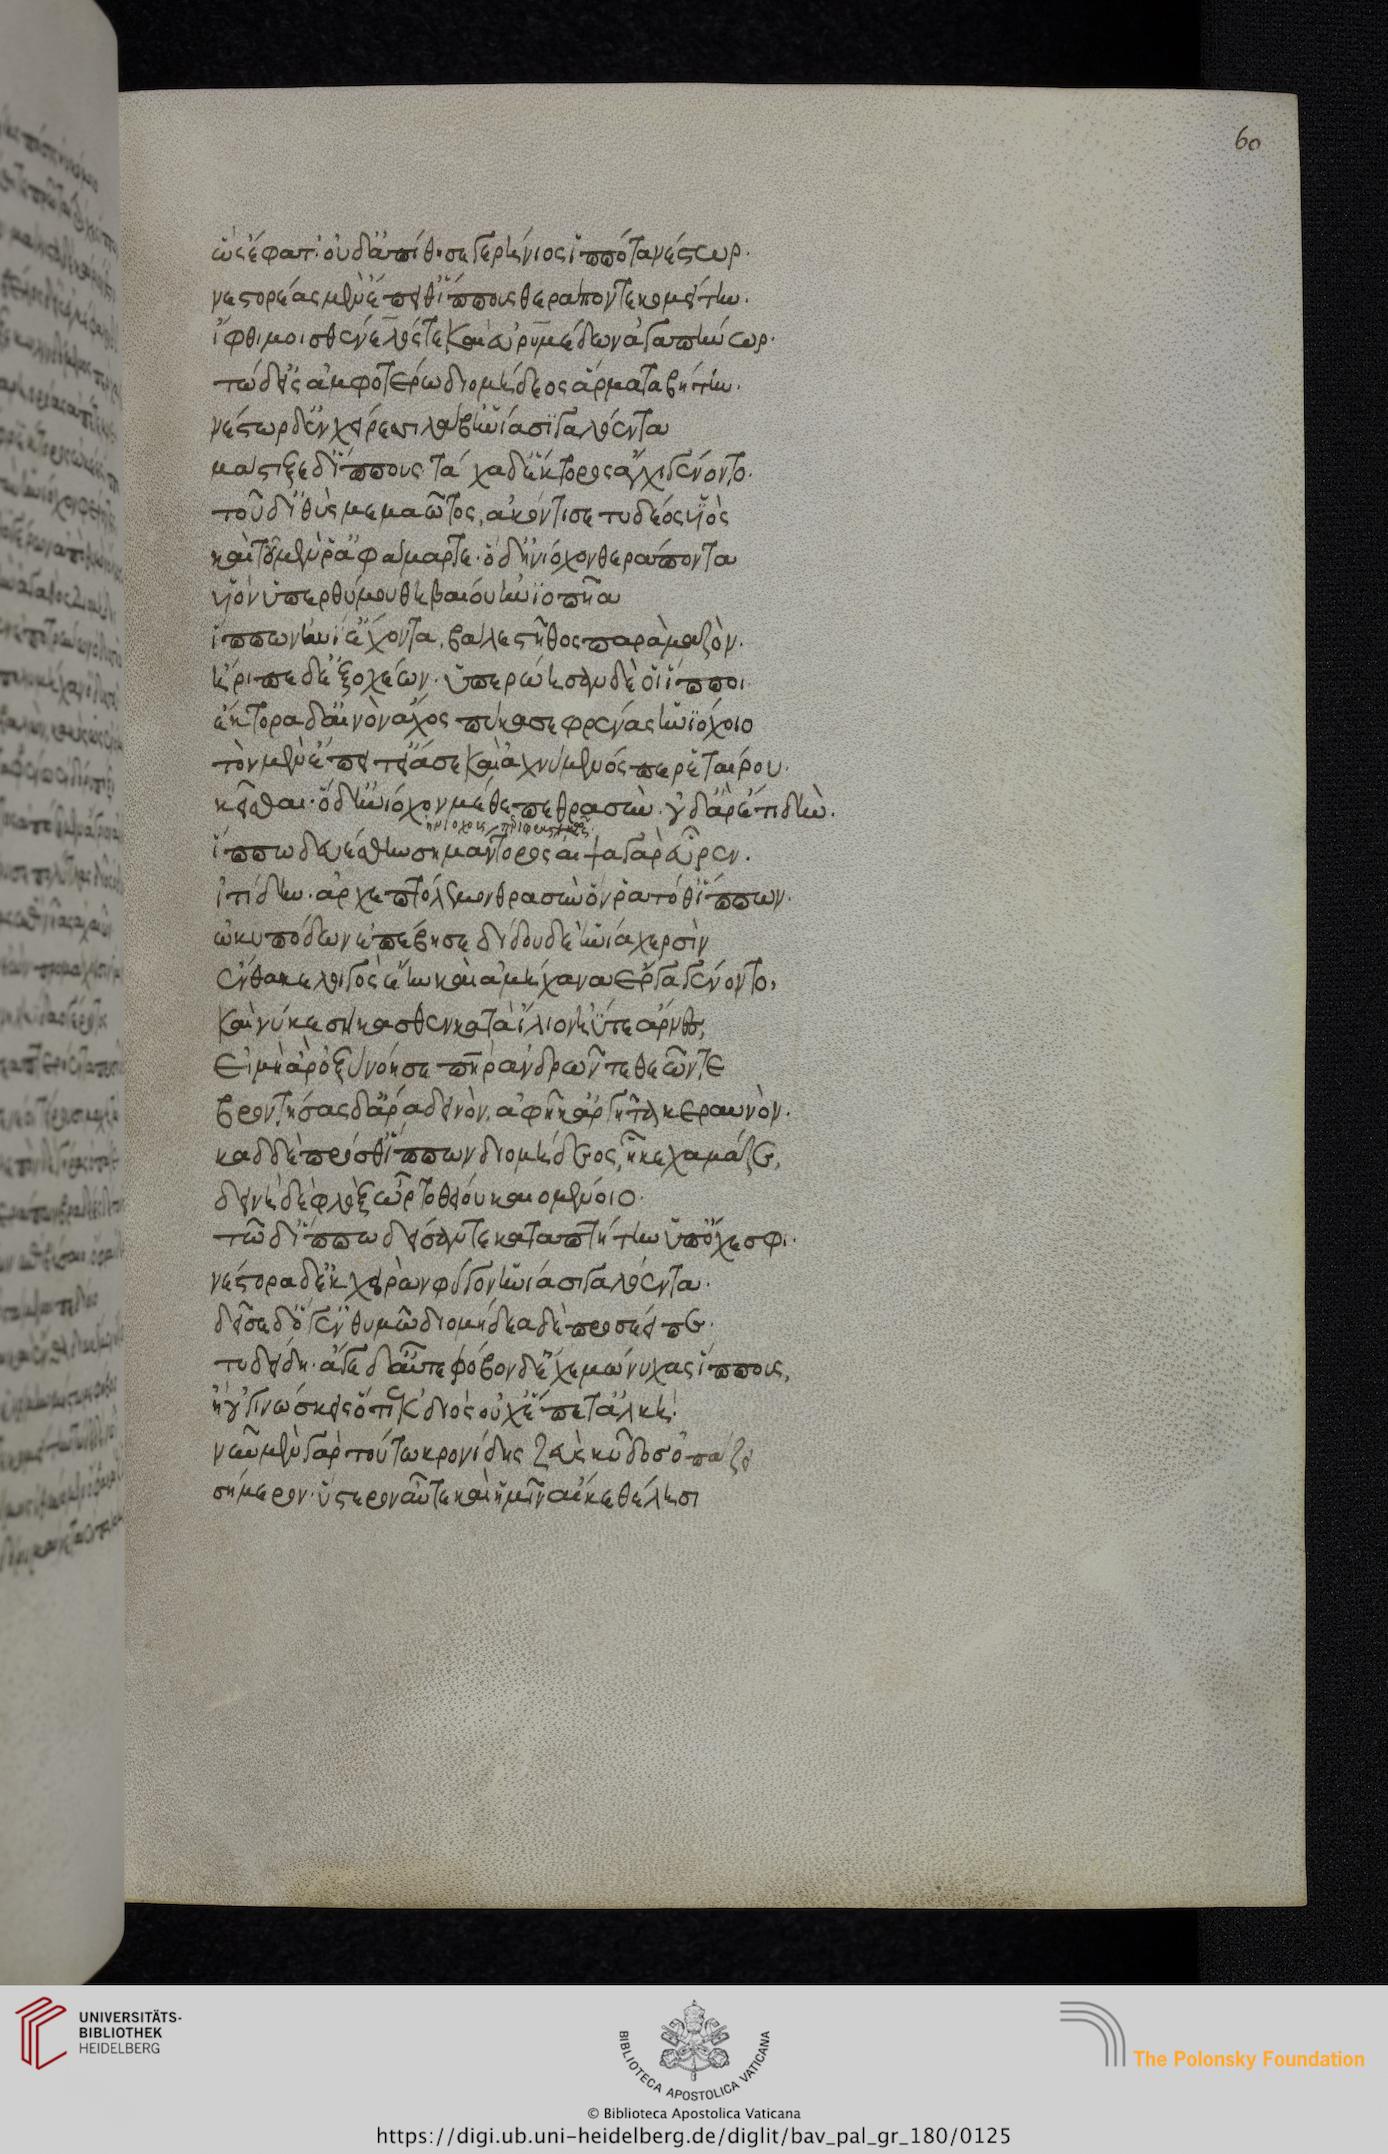 60
ὣς ἔφατ'· οὐδ' ἀπίθησε γερήνιος ἱππότα νέστωρ·
νεστορέας μὲν ἔπειθ' ἵππους θεράποντε κομείτην·
ἴφθιμοι σθένελός τε καὶ εὐρυμέδων ἀγαπήνωρ·
τὼ δ' εἰς ἀμφοτέρω διομήδεος ἅρματα βήτην·
νέστωρ δ' ἐν χείρεσσι λάβ' ἡνία σιγαλόεντα
μάστιξε δ' ἵππους τάχα δ' ἕκτορος ἄγχι γένοντο·
τοῦ δ' ἰθὺς μεμαῶτος, ἀκόντισε τυδέος υἱὸς
καὶ τοῦ μέν ῥ' ἀφάμαρτε· ὁ δ' ἡνίοχον θεράποντα
υἱὸν ὑπερθύμου θηβαίου ἠνιοπῆα
ἵππων ἡνί' ἔχοντα, βάλε στῆθος παρὰ μαζὸν·
ἤριπε δ' ἐξ ὀχέων· ὑπερώησαν δὲ οἱ ἵπποι
ἕκτορα δ' αἰνὸν ἄχος πύκασε φρένας ἡνιόχοιο
τὸν μὲν ἔπειτ' εἴασε καὶ ἀχνύμενός περ ἑταίρου·
κεῖσθαι· ὁ δ' ἡνίοχον μέθεπε θρασὺν· οὐδ' ἄρ' ἔτι δὴν·
ἵππω δευέσθην σημάντορος αἶψα γὰρ εὗρεν·
ἰφιτίδην· ἀρχεπτόλεμον θρασὺν ὅν ῥα τόθ' ἵππων·
ὠκυπόδων ἐπέβησε δίδου δὲ ἡνία χερσὶν
ἔνθα κε λοιγὸς ἔην καὶ ἀμήχανα ἔργα γένοντο,
καὶ νύ κε σήκασθεν κατὰ ἴλιον ἠΰτε ἄρνες,
εἰ μὴ ἄρ' ὀξὺ νόησε πατὴρ ἀνδρῶν τε θεῶν τε
βροντήσας δ' ἄρα δεινὸν, ἀφῆκ' ἀργῆτα κεραυνὸν·
καδδὲ πρόσθ' ἵππων διομήδεος, ἧκε χαμάζε,
δεινὴ δὲ φλὸξ ὦρτο θείου καιομένοιο·
τὼ δ' ἵππω δείσαντε καταπτήτην ὑπ' ὄχεσφι·
νέστορα δ' ἐκ χειρῶν φύγον ἡνία σιγαλόεντα·
δεῖσε δ' ὅγ' ἐν θυμῶ διομήδεα δὲ προσέειπε·
τυδείδη· ἄγε δ' αὖτε φόβον δ' ἔχε μώνυχας ἵππους,
ἦ οὐ γινώσκεις ὅτι τοι ἐκ διὸς οὐχ ἕπετ' ἀλκή·
νῦν μὲν γὰρ τούτω κρονίδης ζεὺς κῦδος ὀπάζει
σήμερον· ὕστερον αὖτε καὶ ἡμῖν αἴ κε θέλησι
UNIVERSITÄTS-
BIBLIOTHEK
HEIDELBERG
BIBLIOTECA APOSTOLICA VATICANA
The Polonsky Foundation
© Biblioteca Apostolica Vaticana
https://digi.ub.uni-heidelberg.de/diglit/bav_pal_gr_180/0125